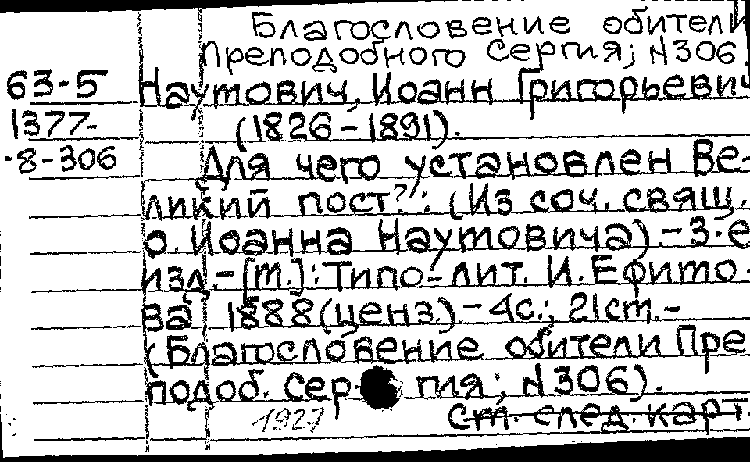 Благословение обители
Преподобного Сергия; N306
63-5
1377-
-8-306
Наумович, Иоанн Григорьевич
(1826-1891).
Для чего установлен Ве-
ликий пост?: (Из соч. свящ.
о. Иоанна Наумовича).-3-е
изд.-[М.]: Типо-лит. И. Ефимо-
ва 1888(ценз.)-4с.; 21см.-
(Благословение обители Пре
подоб. Сергия; N306).
1927
См. след. карт.